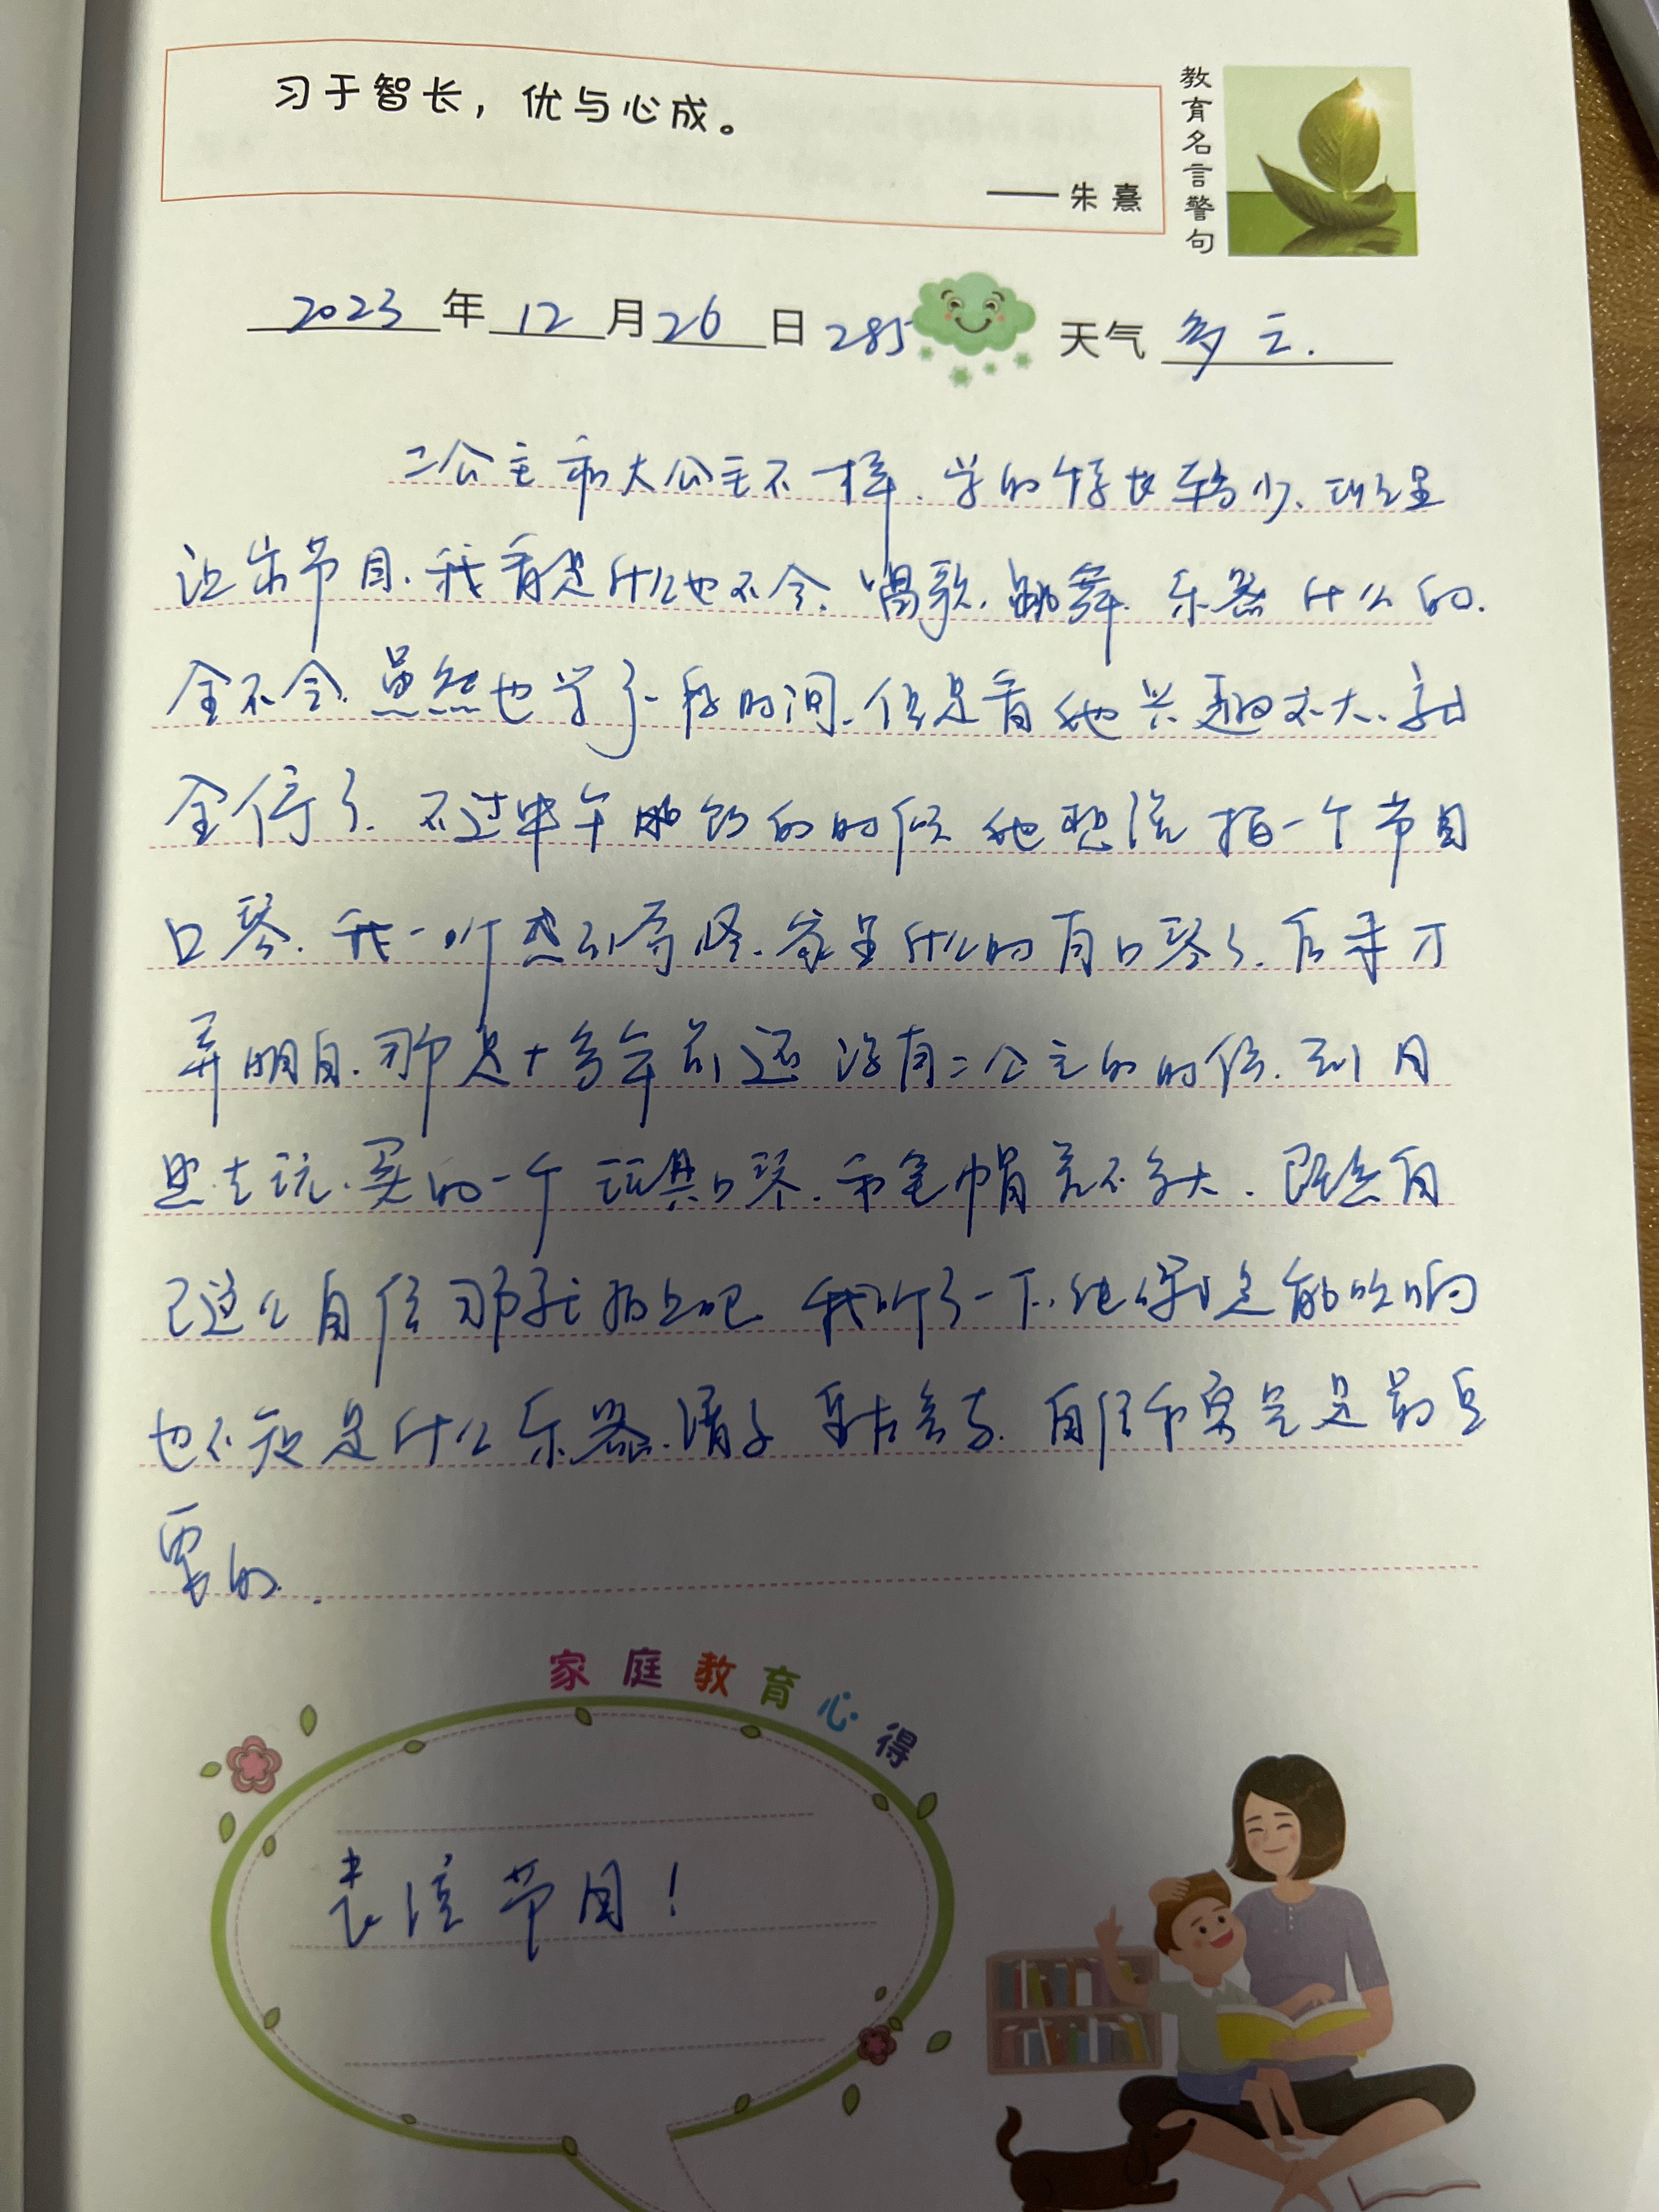 习于智长，优与心成。
——朱熹
教育名言警句
2023年12月26日 285 天气 多云.
二公主和大公主不一样.学的特长较少.班里
让出节目.我看是什么也不会.唱歌.跳舞.乐器什么的.
全不会.虽然也学了一段时间.但是看她兴趣不大.就
全停了.不过中午 的时候她想说拍一个节目
口琴.我一听感到奇怪.家里什么时有口琴了.后来才
弄明白.那是十多年前还没有二公主的时候.到
去玩.买的一个玩具口琴.和笔帽差不多大.既然自
己这么自信那就拍上吧.我听了一下.能吹响
也不知是什么乐器. 自信和 是最重
要的.
家庭教育心得
表演节目!